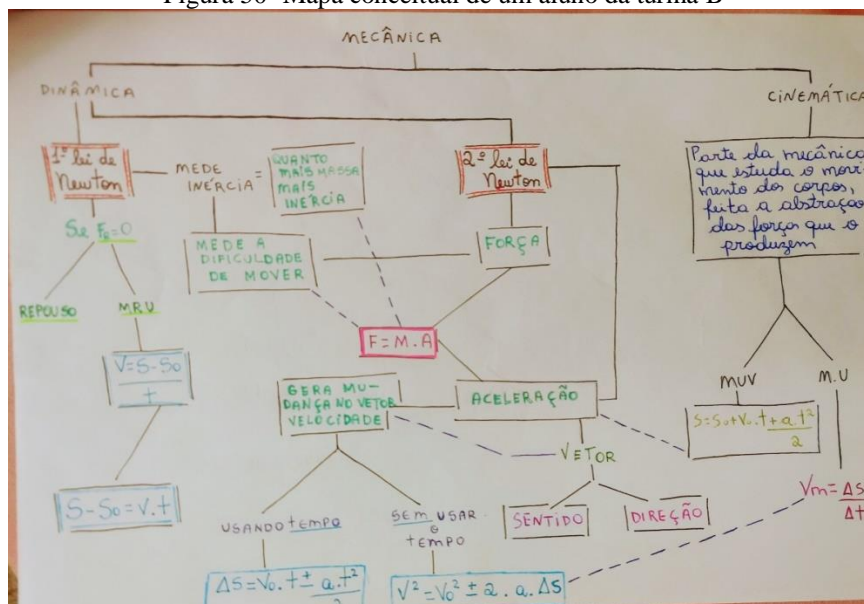 Figura 30- Mapa conceitual de um aluno da turma B
MECÂNICA
DINÂMICA
CINEMÁTICA
1º lei de
Newton
MEDE
INÉRCIA =
QUANTO
MAIS MASSA
MAIS
INÉRCIA
2º lei de
Newton
Parte da mecânica
que estuda o movi-
mento dos corpos,
feita a abstração
das força que o
produzem
Se FR=0
MEDE A
DIFICULDADE
DE MOVER
FORÇA
REPOUSO
MRU
F=M.A
V=S-So
t
GERA MU-
DANÇA NO VETOR
VELOCIDADE
ACELERAÇÃO
MUV
M.U
S=So+Vo.t+a.t²
2
VETOR
S-So=V.t
USANDO tEMPO
SEM USAR
O
tEMPO
SENTIDO
DIREÇÃO
Vm=ΔS
Δt
ΔS=Vo.t±a.t²
2
V²=Vo²±2.a.ΔS